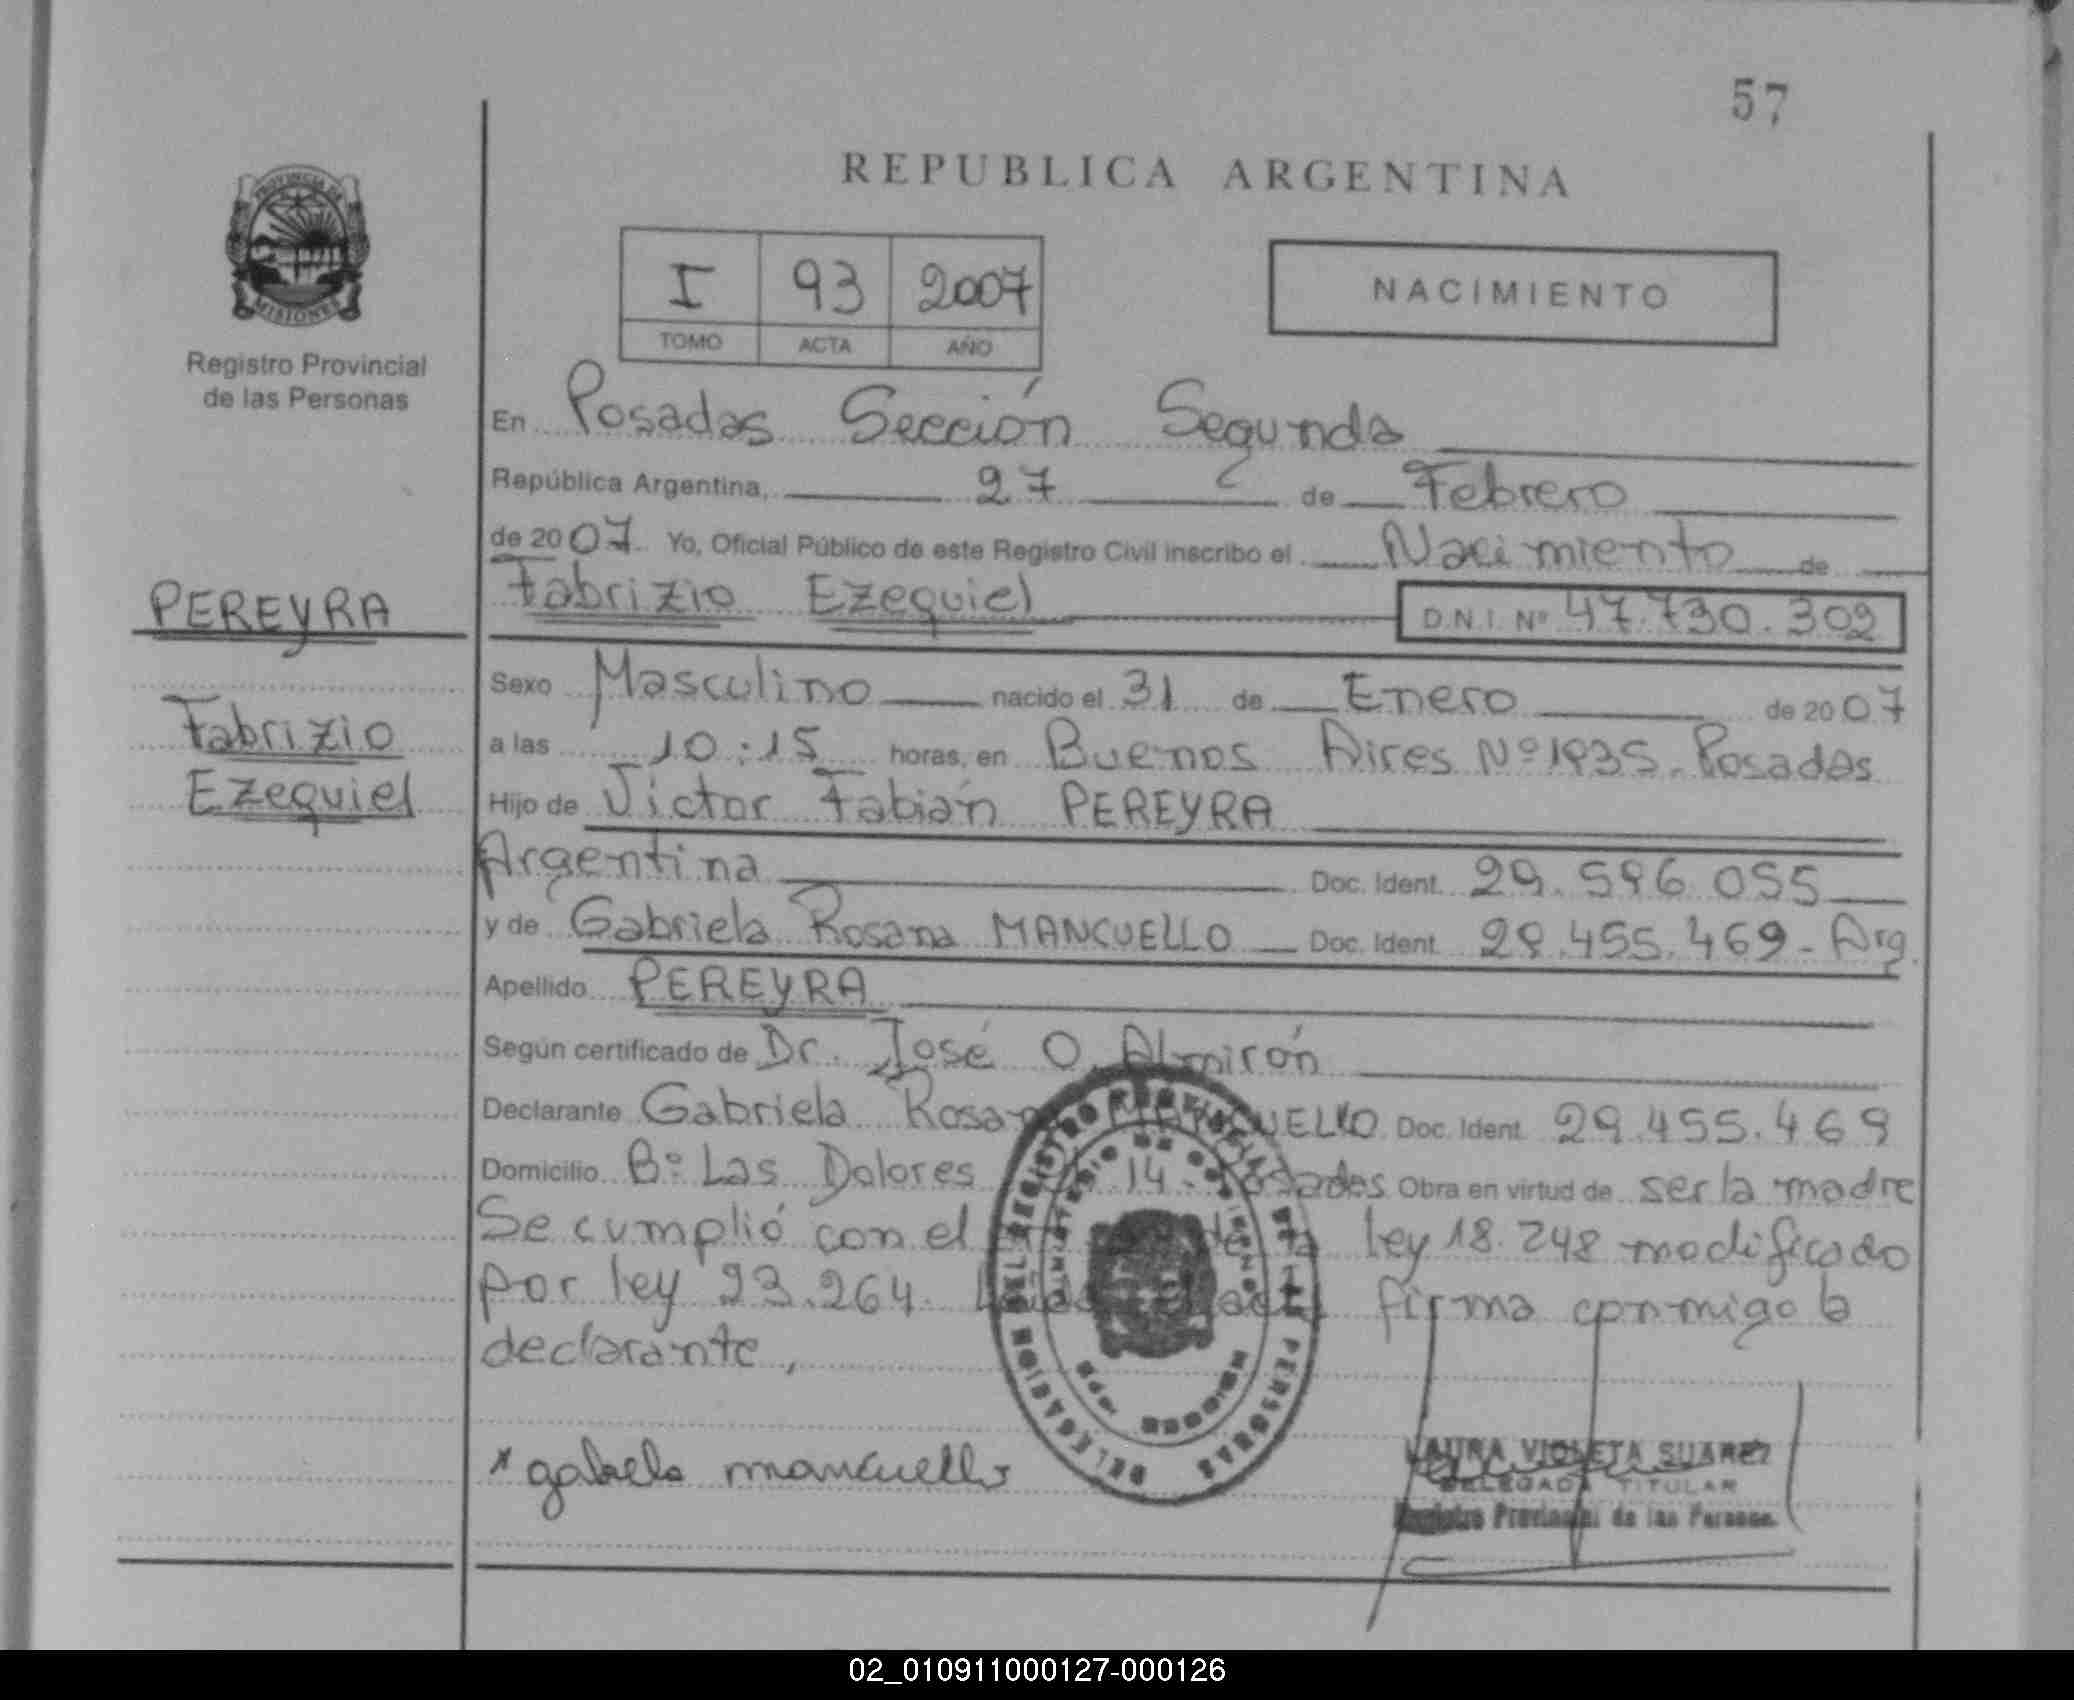 57
REPUBLICA ARGENTINA
PROVINCIA DE
MISIONES
Registro Provincial
de las Personas
I 93 2007
TOMO ACTA AÑO
NACIMIENTO
En Posadas Sección Segunda
República Argentina, 27 de Febrero
de 2007 Yo, Oficial Público de este Registro Civil inscribo el Nacimiento de
PEREYRA
Fabrizio Ezequiel D.N.I. Nº 47.730.302
Sexo Masculino nacido el 31 de Enero de 2007
Fabrizio
a las 10:15 horas, en Buenos Aires Nº 1935. Posadas
Ezequiel
Hijo de Victor Fabián PEREYRA
Argentina Doc. Ident. 29.596.055
y de Gabriela Rosana MANCUELLO Doc. Ident. 29.455.469 - Arg.
Apellido PEREYRA
Según certificado de Dr. José O. Almirón
Declarante Gabriela Rosana MANCUELLO Doc. Ident. 29.455.469
Domicilio Bº Las Dolores 14 - Posadas Obra en virtud de ser la madre
Se cumplió con el de la ley 18.248 modificado
por ley 23.264. firma conmigo la
declarante,
DELEGACION DEL REGISTRO PROVINCIAL DE LAS PERSONAS
MINISTERIO DE GOBIERNO
MISIONES
x gabriela mancuello
LAURA VIOLETA SUAREZ
DELEGADA TITULAR
Registro Provincial de las Personas
02_010911000127-000126